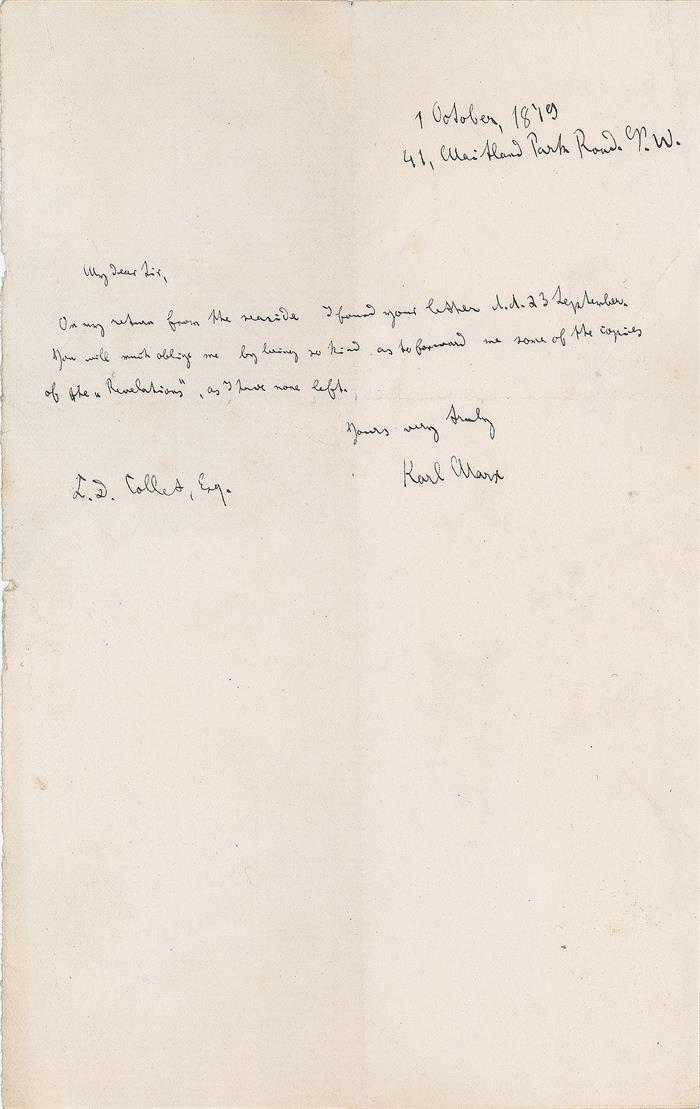 1 October, 1879
41, Maitland Park Road. N. W.
My dear Sir,
On my return from the seaside I found your letter d.d. 23 September.
You will much oblige me by being so kind as to forward me some of the copies
of the „Revelations", as I have none left.
Yours very truly
Karl Marx
C. D. Collet, Esq.